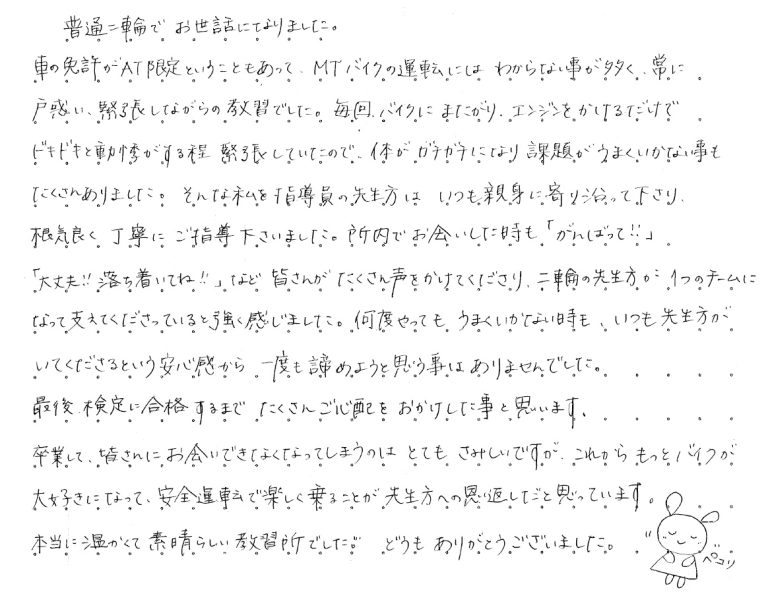 普通二輪で お世話になりました。
車の免許がAT限定ということもあって、MTバイクの運転には わからない事が多く、常に
戸惑い、緊張しながらの教習でした。毎回 バイクに またがり、エンジンを かけるだけで
ドキドキと動悸がする程 緊張していたので、体が ガチガチになり 課題が うまくいかない事も
たくさんありました。 そんな私を指導員の先生方は いつも親身に寄り沿って下さり、
根気良く 丁寧に ご指導下さいました。所内で お会いした時も「がんばって!!」
「大丈夫!! 落ち着いてね!!」など 皆さんが たくさん声をかけてくださり、二輪の先生方が 1つのチームに
なって支えてくださっていると強く感じました。何度やっても うまくいかない時も、いつも先生方が
いてくださるという安心感から 一度も諦めようと思う事は ありませんでした。
最後 検定に合格するまで たくさんご心配を おかけした事と思います。
卒業して、皆さんに お会いできなくなってしまうのは とても さみしいですが、これから もっとバイクが
大好きになって、安全運転で楽しく乗ることが 先生方への恩返しだと思っています。
本当に温かくて 素晴らしい教習所でした。 どうも ありがとうございました。
ペコリ